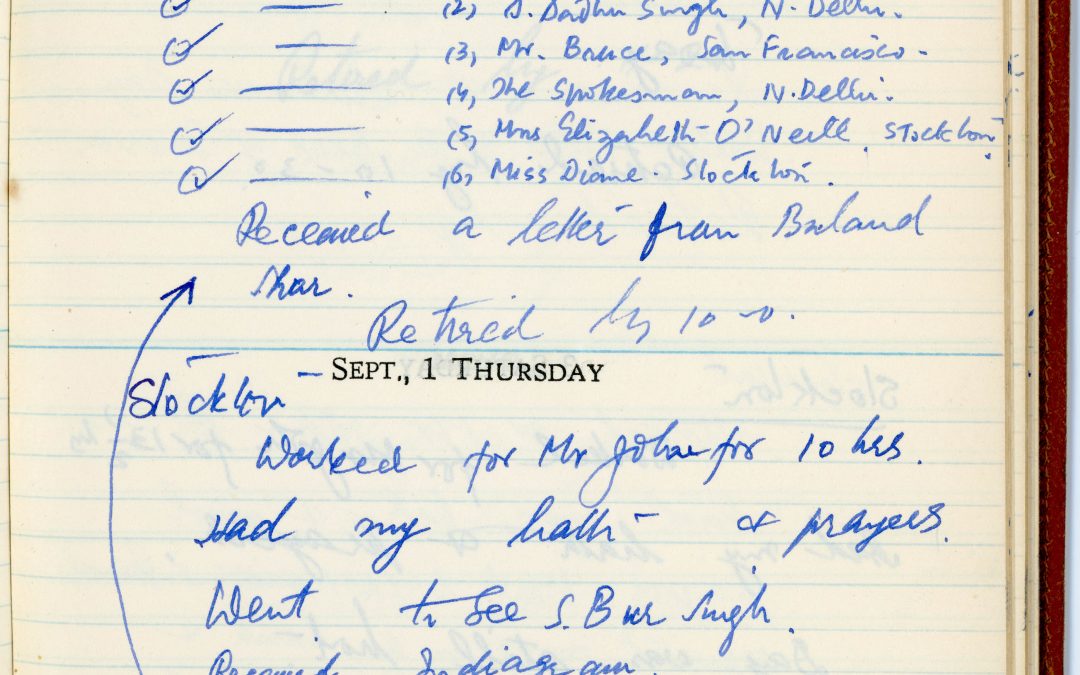 (2, S. Sadhu Singh, N. Delhi.
(3, Mr. Bruce, San Francisco -
(4, The Spokesman, N. Delhi.
(5, Mrs Elizabeth O'Neill, Stockton.
(6, Miss Diane - Stockton.
Received a letter from Buland
Shar.
Retired by 10-0.
SEPT., 1 THURSDAY
Stockton -
Worked for Mr John for 10 hrs.
Had my bath & prayers.
Went to See S. Bir Singh.
Received Indiagram.